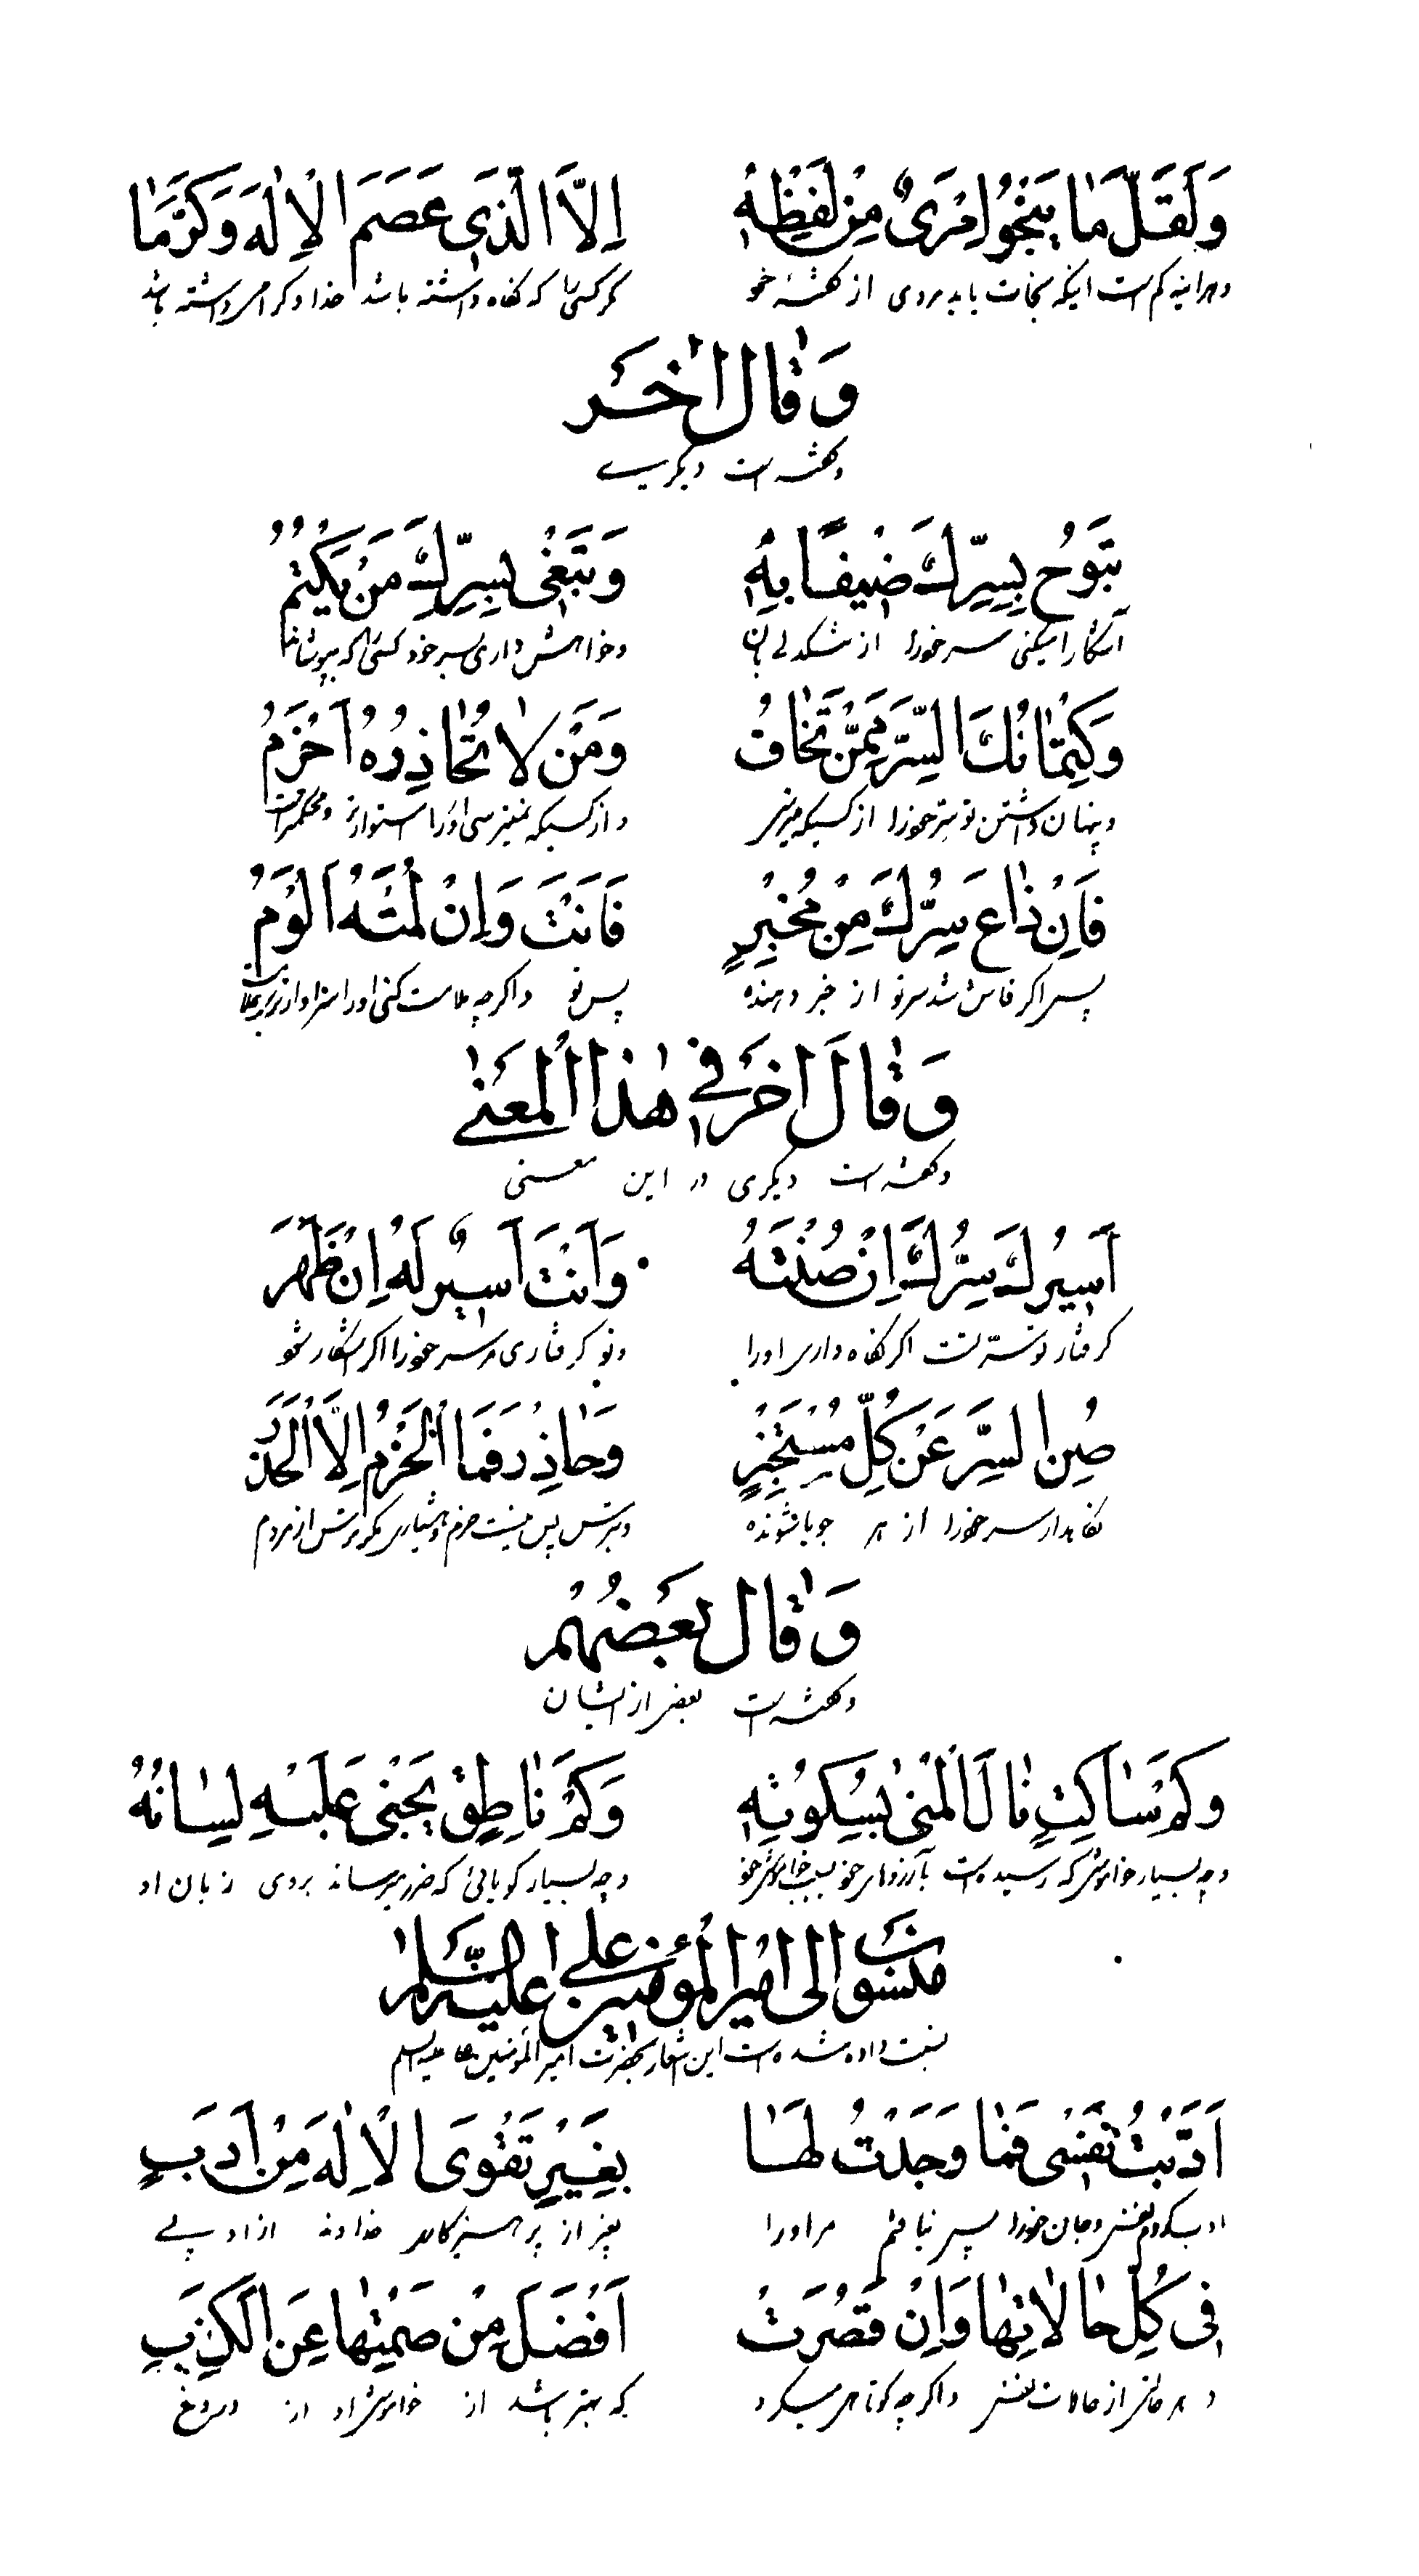 وَلَقَلَّ مَا يَنْجُوا امْرِیءٌ مِنْ لَفْظِهِ اِلَّا الَّذِي عَصَمَ الْاِلٰهُ وَكَرَّمَا
وهرآینه کم است اینکه نجات یابد مردی از گفته خود مگر کسی را که نگاه داشته باشد خدا و گرامی داشته باشد
وَقَالَ اٰخَر
وگفته است دیگری
تَبَوحُ بِسِرِّكَ ضِيفًا بِهِ وَتَبْغی بِسِرِّكَ مَنْ يَكْتُمُ
آشکارا میکنی سر خود را از تنگدلی بآن وخواهش داری بسر خود کسی که بپوشاند
وَكِتْمَانُكَ السِّرَّ مِمَّنْ تَخَافُ وَمَنْ لَا تُحَاذِرُهُ اَحْزَمُ
وپنهان داشتن تو سر خود را از کسیکه میترسی واز کسیکه نمیترسی او را استوارتر ومحکمتر است
فَاِنْ ذَاعَ سِرُّكَ مِنْ مُخْبِرٍ فَاَنْتَ وَاِنْ لُمْتَهُ اَلْوَمُ
پس اگر فاش شد سر تو از خبر دهنده پس تو واگرچه ملامت کنی او را سزاوارتری
وَقَالَ اٰخَرُ فِي هٰذَا الْمَعْنٰى
وگفته است دیگری در این معنی
اَسِيرُكَ سِرُّكَ اِنْ صُنْتَهُ وَاَنْتَ اَسِيرٌ لَهُ اِنْ ظَهَرَ
گرفتار تو سر تست اگر نگاه داری او را وتو گرفتاری مر سر خود را اگر آشکار شود
صُنِ السِّرَّ عَنْ كُلِّ مُسْتَخْبِرٍ وَحَاذِرْ فَمَا الْحَزْمُ اِلَّا الْحَذَرُ
نگاهدار سر خود را از هر جویا شونده وبترس پس نیست حزم وهشیاری مگر ترس از مردم
وَقَالَ بَعْضُهُمْ
وگفته است بعضی از ایشان
وَكَمْ سَاكِتٍ نَالَ الْمُنٰى بِسُكُوتِهِ وَكَمْ نَاطِقٍ يَجْنِي عَلَيْهِ لِسَانُهُ
وچه بسیار خاموشی که رسیده است بآرزوهای خود بسبب خاموشی خود وچه بسیار گویائی که ضرر میرساند بروی زبان او
مَنْسُوبٌ اِلٰى اَمِيرِ الْمُؤْمِنِينَ عَلِي عَلَيْهِ السَّلَام
نسبت داده شده است این اشعار بحضرت امیر المؤمنین علی علیه السلم
اَدَّبْتُ نَفْسِي فَمَا وَجَدْتُ لَهَا بِغَيْرِ تَقْوَى الْاِلٰهِ مِنْ اَدَبٍ
ادب کردم نفس وجان خود را پس نیافتم مر او را بغیر از پرهیزکاری خداوند از ادبی
فِي كُلِّ حَالَاتِهَا وَاِنْ قَصُرَتْ اَفْضَلَ مِنْ صَمْتِهَا عَنِ الْكَذِبِ
در هر حالی از حالات نفس واگرچه کوتاهی میکرد که بهتر باشد از خاموشی او از دروغ